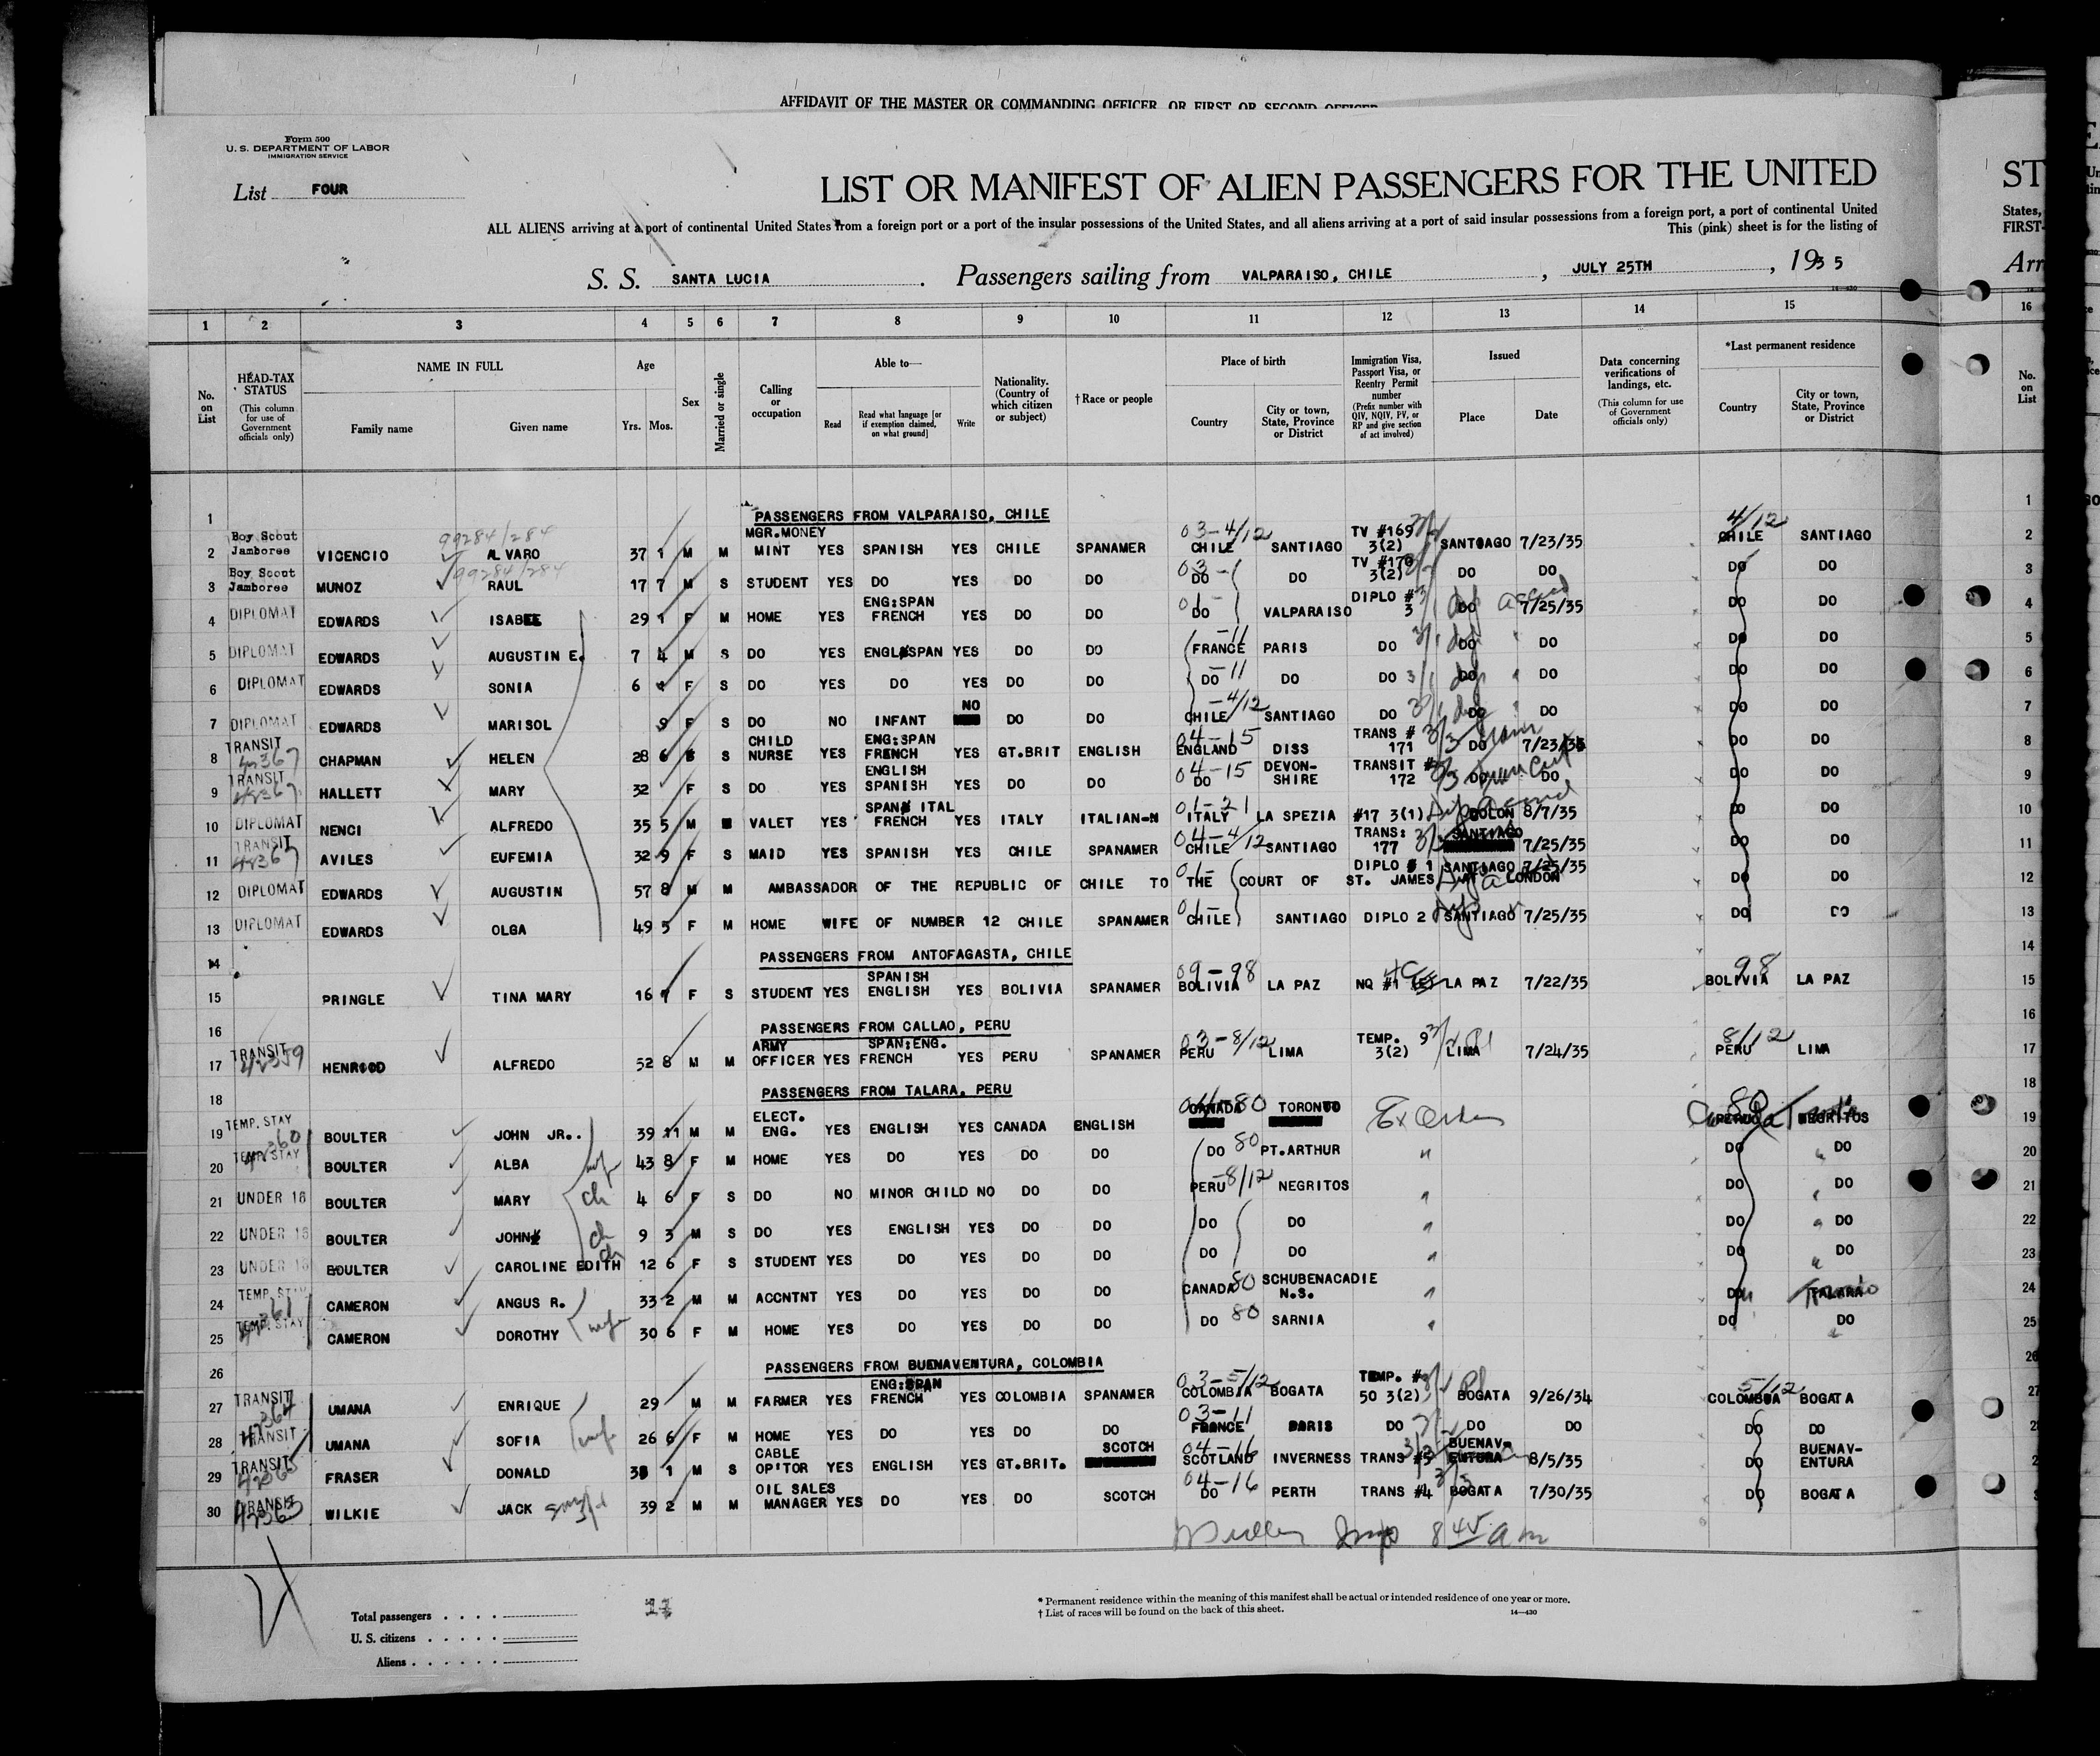 AFFIDAVIT OF THE MASTER OR COMMANDING OFFICER, OR FIRST OR SECOND OFFICER
Form 500
U. S. DEPARTMENT OF LABOR
IMMIGRATION SERVICE
List FOUR
LIST OR MANIFEST OF ALIEN PASSENGERS FOR THE UNITED
ALL ALIENS arriving at a port of continental United States from a foreign port or a port of the insular possessions of the United States, and all aliens arriving at a port of said insular possessions from a foreign port, a port of continental United
This (pink) sheet is for the listing of
S. S. SANTA LUCIA. Passengers sailing from VALPARAISO, CHILE, JULY 25TH, 1935
14—430
1 2 3 4 5 6 7 8 9 10 11 12 13 14 15
No. on List
HEAD-TAX STATUS (This column for use of Government officials only)
NAME IN FULL Family name Given name
Age Yrs. Mos.
Sex
Married or single
Calling or occupation
Able to— Read Read what language [or if exemption claimed, on what ground] Write
Nationality. (Country of which citizen or subject)
†Race or people
Place of birth Country City or town, State, Province or District
Immigration Visa, Passport Visa, or Reentry Permit number (Prefix number with QIV, NQIV, PV, or RP and give section of act involved)
Issued Place Date
Data concerning verifications of landings, etc. (This column for use of Government officials only)
*Last permanent residence Country City or town, State, Province or District
1 PASSENGERS FROM VALPARAISO, CHILE
99284/284 03-4/12 4/12
2 Boy Scout Jamboree VICENCIO ALVARO 37 1 M M MGR.MONEY MINT YES SPANISH YES CHILE SPANAMER CHILE SANTIAGO TV #169 3(2) SANTOAGO 7/23/35 CHILE SANTIAGO
99284/284 03-
3 Boy Scout Jamboree MUNOZ RAUL 17 7 M S STUDENT YES DO YES DO DO DO DO TV #170 3(2) DO DO DO DO
4 DIPLOMAT EDWARDS ISABEL 29 1 F M HOME YES ENG:SPAN FRENCH YES DO DO 01- DO VALPARAISO DIPLO #3 3 DO 7/25/35 DO DO
5 DIPLOMAT EDWARDS AUGUSTIN E. 7 4 M S DO YES ENGL SPAN YES DO DO -11 FRANCE PARIS DO DO DO DO DO
6 DIPLOMAT EDWARDS SONIA 6 F S DO YES DO YES DO DO -11 DO DO DO DO DO DO DO
7 DIPLOMAT EDWARDS MARISOL 9 F S DO NO INFANT NO DO DO -4/12 CHILE SANTIAGO DO DO DO DO DO
8 TRANSIT CHAPMAN HELEN 28 6 S CHILD NURSE YES ENG:SPAN FRENCH YES GT.BRIT ENGLISH 04-15 ENGLAND DISS TRANS # 171 DO 7/23/35 DO DO
9 TRANSIT 42367 HALLETT MARY 32 F S DO YES ENGLISH SPANISH YES DO DO 04-15 DO DEVON-SHIRE TRANSIT # 172 DO DO DO DO
10 DIPLOMAT NENCI ALFREDO 35 5 M VALET YES SPAN ITAL FRENCH YES ITALY ITALIAN-N 01-21 ITALY LA SPEZIA #17 3(1) COLON 8/7/35 DO DO
11 TRANSIT 42367 AVILES EUFEMIA 32 9 F S MAID YES SPANISH YES CHILE SPANAMER 04-4/12 CHILE SANTIAGO TRANS: 177 SANTIAGO 7/25/35 DO DO
12 DIPLOMAT EDWARDS AUGUSTIN 57 8 M M AMBASSADOR OF THE REPUBLIC OF CHILE TO THE COURT OF ST. JAMES AT LONDON DIPLO # 1 SANTIAGO 7/25/35 DO DO
13 DIPLOMAT EDWARDS OLGA 49 5 F M HOME WIFE OF NUMBER 12 CHILE SPANAMER 01- CHILE SANTIAGO DIPLO 2 SANTIAGO 7/25/35 DO DO
14 PASSENGERS FROM ANTOFAGASTA, CHILE
15 PRINGLE TINA MARY 16 F S STUDENT YES SPANISH ENGLISH YES BOLIVIA SPANAMER 09-98 BOLIVIA LA PAZ NQ #1 LA PAZ 7/22/35 98 BOLIVIA LA PAZ
16 PASSENGERS FROM CALLAO, PERU
17 TRANSIT 42359 HENROOD ALFREDO 52 8 M M ARMY OFFICER YES SPAN:ENG. FRENCH YES PERU SPANAMER 03-8/12 PERU LIMA TEMP. 9 3(2) LIMA 7/24/35 8/12 PERU LIMA
18 PASSENGERS FROM TALARA, PERU
19 TEMP. STAY BOULTER JOHN JR.. 39 11 M M ELECT. ENG. YES ENGLISH YES CANADA ENGLISH 04-80 CANADA TORONTO 80 NEGRITOS
20 TEMP. STAY BOULTER ALBA 43 8 F M HOME YES DO YES DO DO DO 80 PT.ARTHUR " DO DO
21 UNDER 16 BOULTER MARY ch 4 6 F S DO NO MINOR CHILD NO DO DO PERU -8/12 NEGRITOS " DO DO
22 UNDER 16 BOULTER JOHN ch 9 3 M S DO YES ENGLISH YES DO DO DO DO " DO DO
23 UNDER 16 BOULTER CAROLINE EDITH ch 12 6 F S STUDENT YES DO YES DO DO DO DO " DO DO
24 TEMP. STAY CAMERON ANGUS R. 33 2 M M ACCNTNT YES DO YES DO DO CANADA 80 SCHUBENACADIE N.S. " DO TALARA
25 TEMP. STAY CAMERON DOROTHY wife 30 6 F M HOME YES DO YES DO DO DO 80 SARNIA " DO DO
26 PASSENGERS FROM BUENAVENTURA, COLOMBIA
27 TRANSIT UMANA ENRIQUE 29 M M FARMER YES ENG:SPAN FRENCH YES COLOMBIA SPANAMER 03-5/12 COLOMBIA BOGATA TEMP. # 50 3(2) BOGATA 9/26/34 5/12 COLOMBIA BOGATA
28 TRANSIT UMANA SOFIA wife 26 6 F M HOME YES DO YES DO DO 03-11 FRANCE PARIS DO DO DO DO DO
29 TRANSIT FRASER DONALD 1 M S CABLE OP'TOR YES ENGLISH YES GT.BRIT. SCOTCH 04-16 SCOTLAND INVERNESS TRANS #5 BUENAV-ENTURA 8/5/35 DO BUENAV-ENTURA
30 TRANSIT WILKIE JACK 39 2 M M OIL SALES MANAGER YES DO YES DO SCOTCH 04-16 DO PERTH TRANS #4 BOGATA 7/30/35 DO BOGATA
8 45 am
Total passengers
U. S. citizens
Aliens
* Permanent residence within the meaning of this manifest shall be actual or intended residence of one year or more.
† List of races will be found on the back of this sheet.
14—430
ST
States,
FIRST-
Arr
16
No. on List